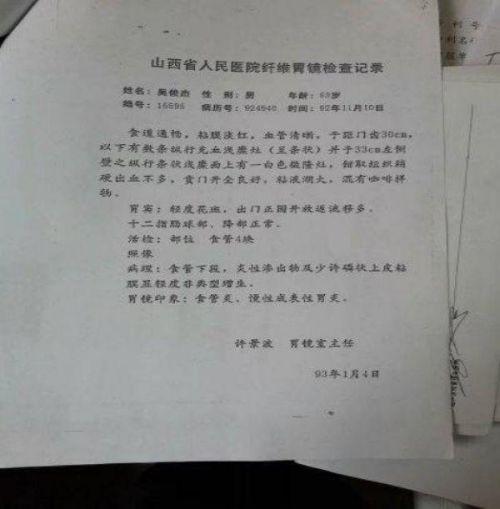 山西省人民医院纤维胃镜检查记录
姓名：吴俊杰 性 别：男 年龄：63岁
编号：16595 病历号：924940 时间：92年11月10日
食道通畅，粘膜淡红，血管清晰，于距门齿30cm，
以下有数条纵行充血浅糜灶（呈条状）并于33cm左侧
壁之纵行条状浅糜面上有一白色微隆灶，钳取组织稍
硬出血不多，贲门开全良好，粘液湖大，混有咖啡样
物。
胃窦：轻度花斑，出门正圆开放返流移多。
十二指肠球部、降部正常。
活检：部位 食管4块
照像
病理：食管下段，炎性渗出物及少许磷状上皮粘
膜显轻度非典型增生。
胃镜印象：食管炎、慢性成表性胃炎。
许景波 胃镜室主任
93年1月4日